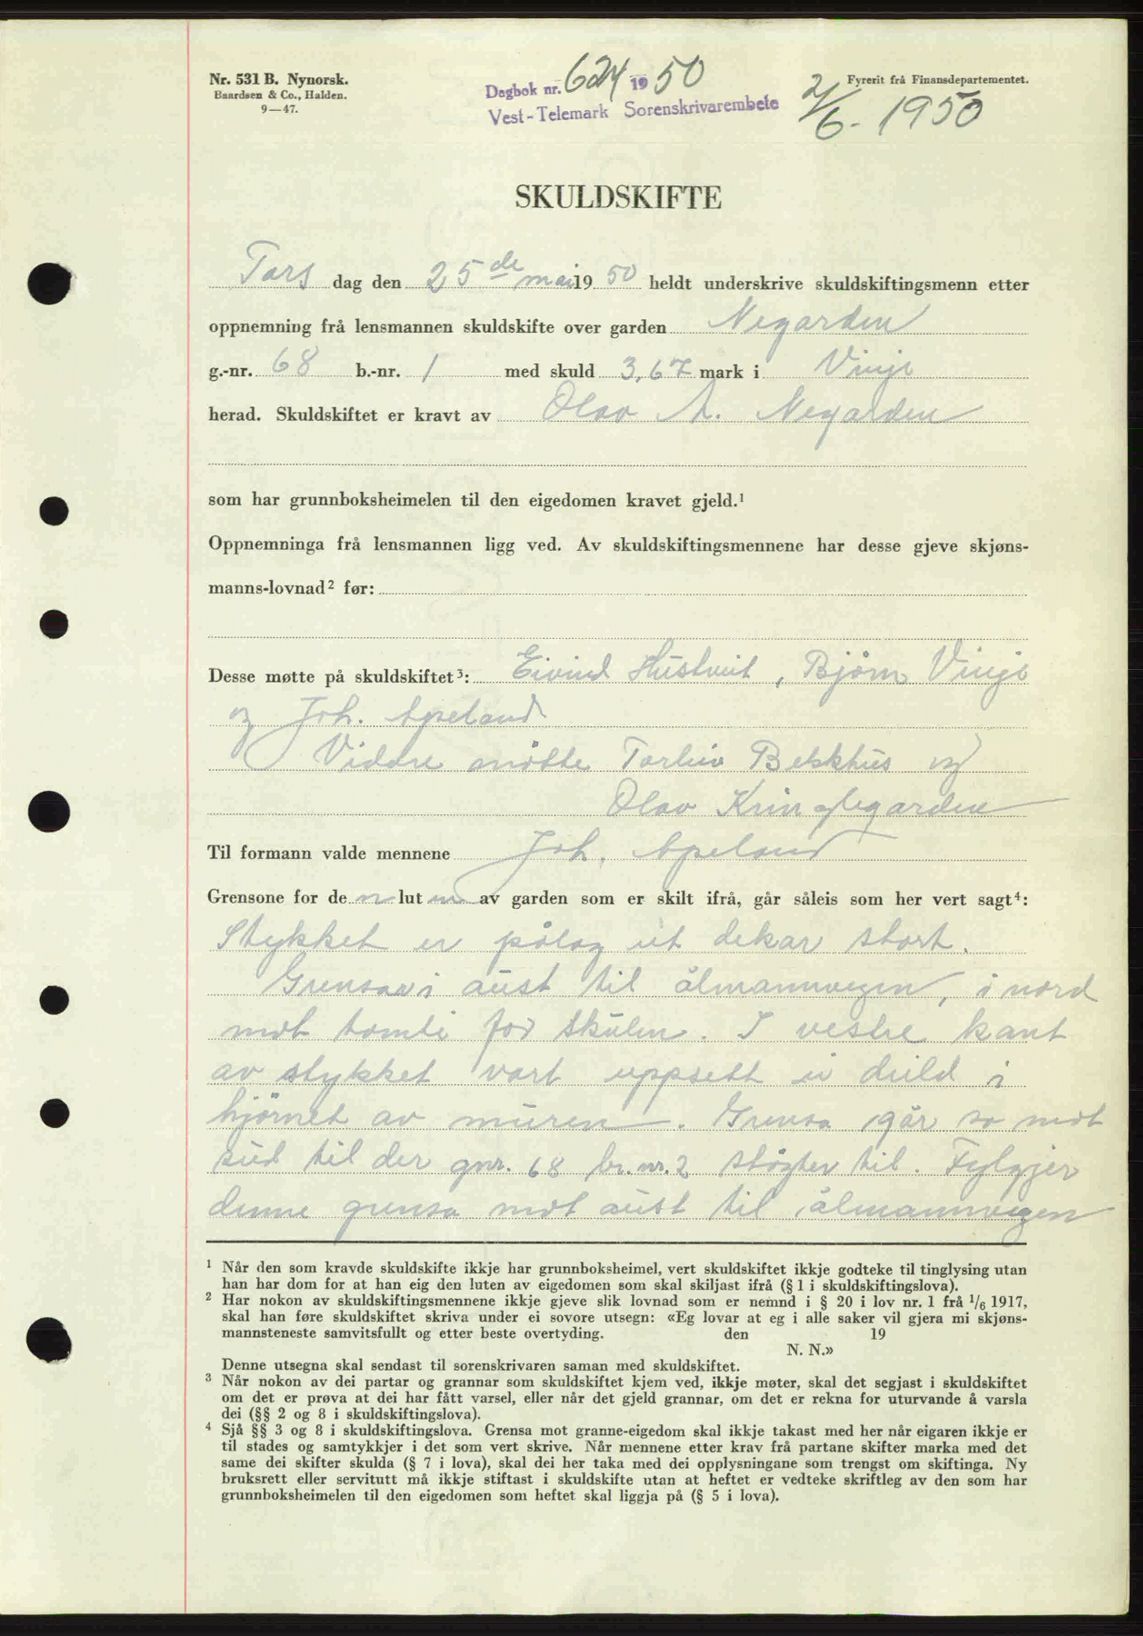 Nr. 531 B. Nynorsk.
Baardsen & Co., Halden.
9—47.
Dagbok nr. 624 1950
Vest-Telemark Sorenskrivarembete
Fyrerit frå Finansdepartementet.
2/6-1950
SKULDSKIFTE
Tors dag den 25de mai 1950 heldt underskrive skuldskiftingsmenn etter
oppnemning frå lensmannen skuldskifte over garden Negarden
g.-nr. 68 b.-nr. 1 med skuld 3,67 mark i Vinje
herad. Skuldskiftet er kravt av Olav A. Negarden
som har grunnboksheimelen til den eigedomen kravet gjeld.¹
Oppnemninga frå lensmannen ligg ved. Av skuldskiftingsmennene har desse gjeve skjøns-
manns-lovnad² før:
Desse møtte på skuldskiftet³: Eivind Hustveit, Bjørn Vinje
og Joh. Apeland
Viddre møtte Torleiv Bekkhus og
Olav Negarden
Til formann valde mennene Joh. Apeland
Grensone for de n lut en av garden som er skilt ifrå, går såleis som her vert sagt⁴:
Stykket er pålag eit dekar stort.
Grensa i aust til ålmannvegen, i nord
mot tomti for skulen. I vestre kant
av stykket vart uppsett ei deild i
hjørnet av muren. Grensa går so mot
sud til der gnr. 68 br.nr. 2 støyter til. Fylgjer
denne grensa mot aust til ålmannvegen
¹ Når den som kravde skuldskifte ikkje har grunnboksheimel, vert skuldskiftet ikkje godteke til tinglysing utan
han har dom for at han eig den luten av eigedomen som skal skiljast ifrå (§ 1 i skuldskiftingslova).
² Har nokon av skuldskiftingsmennene ikkje gjeve slik lovnad som er nemnd i § 20 i lov nr. 1 frå 1/6 1917,
skal han føre skuldskiftet skriva under ei sovore utsegn: «Eg lovar at eg i alle saker vil gjera mi skjøns-
mannsteneste samvitsfullt og etter beste overtyding. den 19
N. N.»
Denne utsegna skal sendast til sorenskrivaren saman med skuldskiftet.
³ Når nokon av dei partar og grannar som skuldskiftet kjem ved, ikkje møter, skal det segjast i skuldskiftet
om det er prøva at dei har fått varsel, eller når det gjeld grannar, om det er rekna for uturvande å varsla
dei (§§ 2 og 8 i skuldskiftingslova).
⁴ Sjå §§ 3 og 8 i skuldskiftingslova. Grensa mot granne-eigedom skal ikkje takast med her når eigaren ikkje er
til stades og samtykkjer i det som vert skrive. Når mennene etter krav frå partane skifter marka med det
same dei skifter skulda (§ 7 i lova), skal dei her taka med dei opplysningane som trengst om skiftinga. Ny
bruksrett eller servitutt må ikkje stiftast i skuldskifte utan at heftet er vedteke skriftleg av den som har
grunnboksheimelen til den eigedomen som heftet skal liggja på (§ 5 i lova).